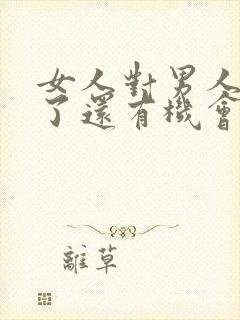 女人對男人
了還有機會
離草